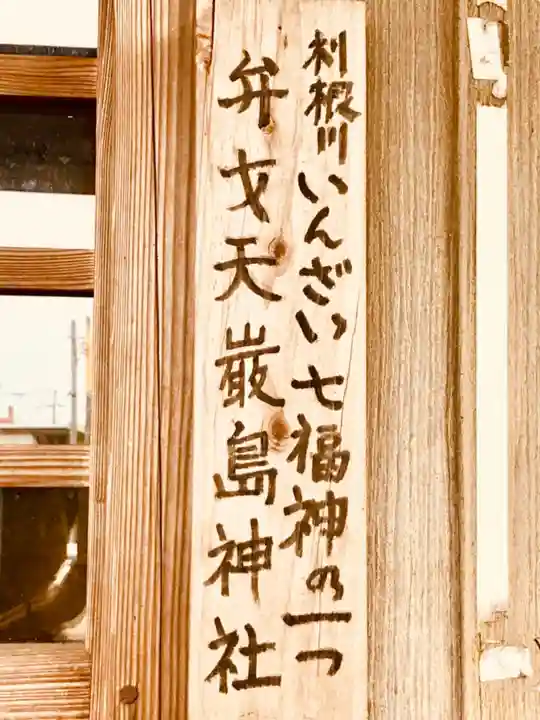 利根川いんざい七福神の一つ
弁才天厳島神社